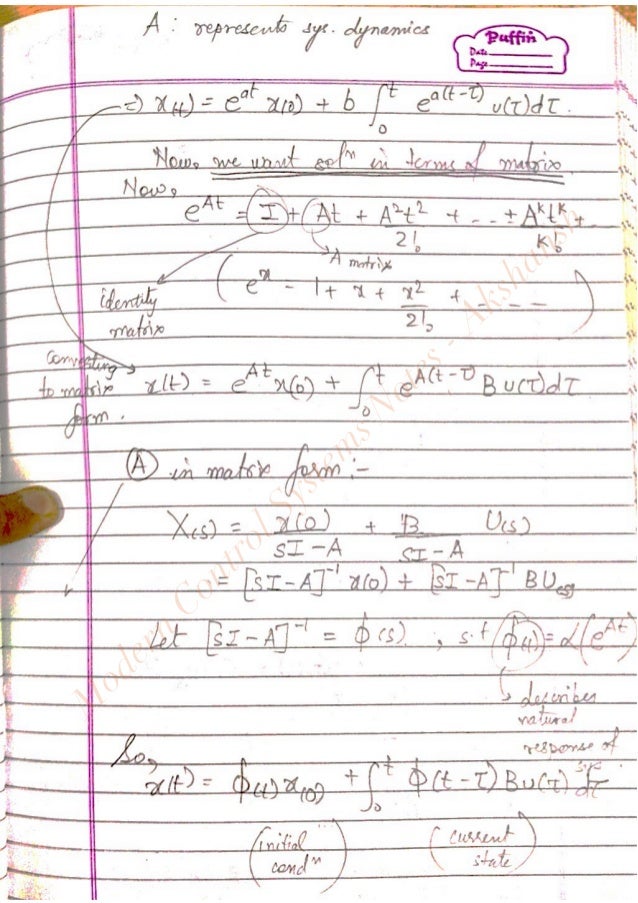 A : represents sys. dynamics
Puffin
Date
Page
⇒ x(t) = e^{at} x(0) + b ∫_0^t e^{a(t-τ)} u(τ)dτ.
Now, we want sol^n in terms of matrix
Now,
e^{At} = I + At + A²t²/2! + - - + A^k t^k/k! + -
A matrix
(e^x = 1 + x + x²/2! + - - - -)
identity
matrix
Converting
to matrix
form.
x(t) = e^{At} x(0) + ∫_0^t e^{A(t-τ)} B u(τ) dτ
Ⓐ in matrix form :-
X(s) = x(0)/(sI-A) + B/(sI-A) U(s)
= [sI-A]^{-1} x(0) + [sI-A]^{-1} B U(s)
Let [sI-A]^{-1} = ϕ(s) , s.t ϕ(t) = L(e^{At})
describes
natural
response of
sys
So,
x(t) = ϕ(t) x(0) + ∫_0^t ϕ(t-τ) B u(τ) dτ
(initial
cond^n)
(current
state)
Modern Control Systems Notes - Akshansh